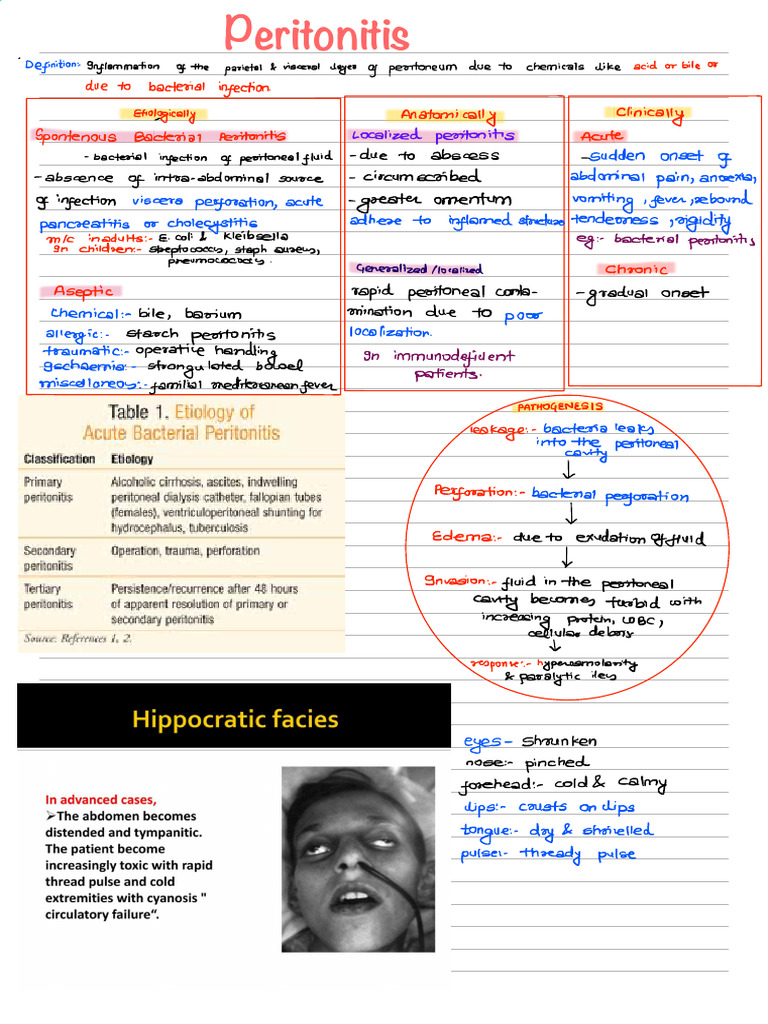 Peritonitis
Definition:- Inflammation of the parietal & visceral layer of peritoneum due to chemicals like acid or bile or
due to bacterial infection
Etiologically
Spontenous Bacterial Peritonitis
- bacterial infection of peritoneal fluid
- abscence of intra-abdominal source
of infection viscera perforation, acute
pancreatitis or cholecystitis
m/c in adults:- E. coli & Kleibsella
In children:- streptococcus, staph aureus,
pneumococcus.
Aseptic
Chemical:- bile, barium
allergic:- starch peritonitis
traumatic:- operative handling
Ischaemia:- strangulated bowel
miscellaneous:- familial mediterranean fever
Anatomically
Localized peritonitis
- due to abscess
- circumscribed
- greater omentum
adhere to inflamed structure
Generalized /localized
rapid peritoneal conta-
mination due to poor
localization.
In immunodeficient
patients.
Clinically
Acute
- Sudden onset of
abdominal pain, anorexia,
vomiting, fever, rebound
tenderness, rigidity
eg:- bacterial peritonitis
Chronic
- gradual onset
Table 1. Etiology of
Acute Bacterial Peritonitis
Classification Etiology
Primary peritonitis Alcoholic cirrhosis, ascites, indwelling
peritoneal dialysis catheter, fallopian tubes
(females), ventriculoperitoneal shunting for
hydrocephalus, tuberculosis
Secondary peritonitis Operation, trauma, perforation
Tertiary peritonitis Persistence/recurrence after 48 hours
of apparent resolution of primary or
secondary peritonitis
Source: References 1, 2.
PATHOGENESIS
leakage:- bacteria leaks
into the peritoneal
cavity
Perforation:- bacterial perforation
Edema:- due to exudation of fluid
Invasion:- fluid in the peritoneal
cavity becomes turbid with
increasing protein, WBC,
cellular debris
response:- hyperosmolarity
& paralytic ileus
Hippocratic facies
In advanced cases,
➢The abdomen becomes
distended and tympanitic.
The patient become
increasingly toxic with rapid
thread pulse and cold
extremities with cyanosis "
circulatory failure“.
eyes - Shrunken
nose:- pinched
forehead:- cold & calmy
lips:- crusts on lips
tongue:- dry & shrivelled
pulse:- thready pulse